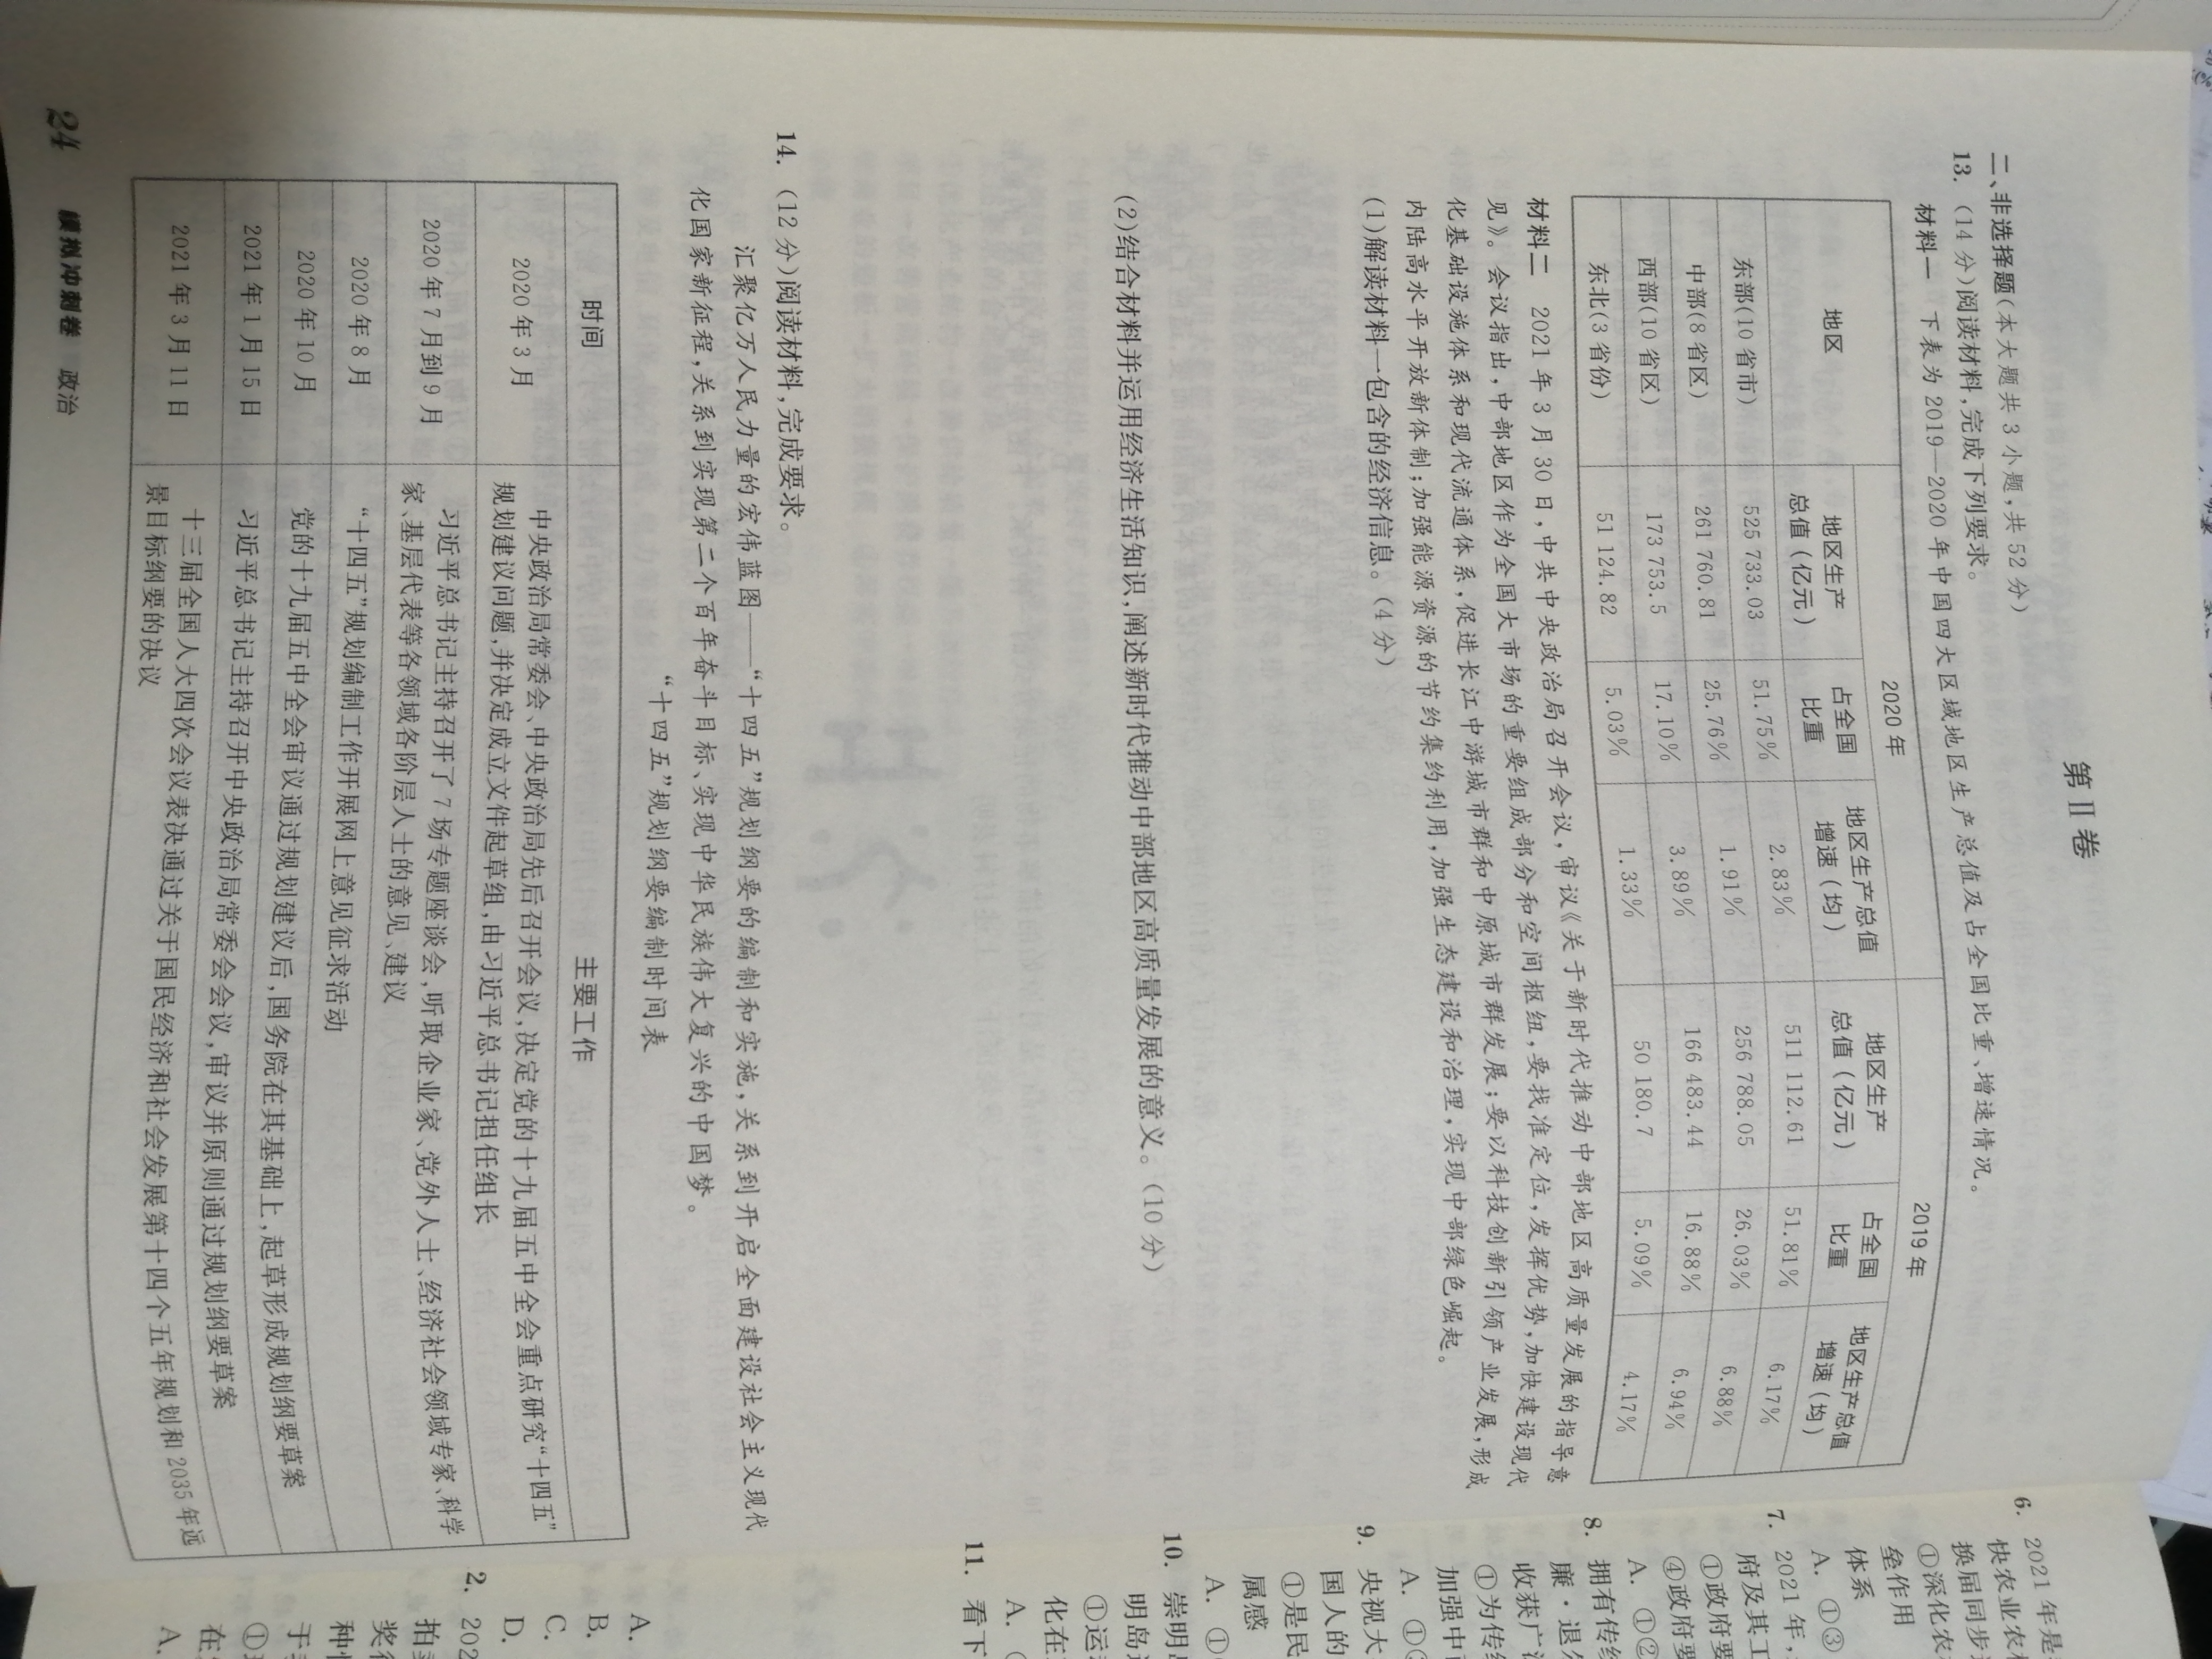 第Ⅱ卷
二、非选择题(本大题共 3 小题,共 52 分)
13. (14 分)阅读材料,完成下列要求。
材料一 下表为 2019—2020 年中国四大区域地区生产总值及占全国比重、增速情况。
地区 2020 年 2019 年
地区生产总值(亿元) 占全国比重 地区生产总值增速(均) 地区生产总值(亿元) 占全国比重 地区生产总值增速(均)
东部(10 省市) 525 733.03 51.75% 2.83% 511 112.61 51.81% 6.17%
中部(8 省区) 261 760.81 25.76% 1.91% 256 788.05 26.03% 6.88%
西部(10 省区) 173 753.5 17.10% 3.89% 166 483.44 16.88% 6.94%
东北(3 省份) 51 124.82 5.03% 1.33% 50 180.7 5.09% 4.17%
材料二 2021 年 3 月 30 日,中共中央政治局召开会议,审议《关于新时代推动中部地区高质量发展的指导意
见》。会议指出,中部地区作为全国大市场的重要组成部分和空间枢纽,要找准定位,发挥优势,加快建设现代
化基础设施体系和现代流通体系,促进长江中游城市群和中原城市群发展;要以科技创新引领产业发展,形成
内陆高水平开放新体制;加强能源资源的节约集约利用,加强生态建设和治理,实现中部绿色崛起。
(1)解读材料一包含的经济信息。(4 分)
(2)结合材料并运用经济生活知识,阐述新时代推动中部地区高质量发展的意义。(10 分)
14. (12 分)阅读材料,完成要求。
汇聚亿万人民力量的宏伟蓝图——“十四五”规划纲要的编制和实施,关系到开启全面建设社会主义现代
化国家新征程,关系到实现第二个百年奋斗目标、实现中华民族伟大复兴的中国梦。
“十四五”规划纲要编制时间表
时间 主要工作
2020 年 3 月 中央政治局常委会、中央政治局先后召开会议,决定党的十九届五中全会重点研究“十四五”
规划建议问题,并决定成立文件起草组,由习近平总书记担任组长
2020 年 7 月到 9 月 习近平总书记主持召开了 7 场专题座谈会,听取企业家、党外人士、经济社会领域专家、科学
家、基层代表等各领域各阶层人士的意见、建议
2020 年 8 月 “十四五”规划编制工作开展网上意见征求活动
2020 年 10 月 党的十九届五中全会审议通过规划建议后,国务院在其基础上,起草形成规划纲要草案
2021 年 1 月 15 日 习近平总书记主持召开中央政治局常委会会议,审议并原则通过规划纲要草案
2021 年 3 月 11 日 十三届全国人大四次会议表决通过关于国民经济和社会发展第十四个五年规划和 2035 年远
景目标纲要的决议
24 模拟冲刺卷 政治
6. 2021 年是
快农业农村
换届同步
①深化农
垒作用
体系
A. ①③
7. 2021 年,
府及其工
①政府要
④政府要
A. ①②
8. 拥有传统
廉·退
收获广
①为传统
加强中
A. ①
9. 央视大
国人的
①是民
属感
A. ①
10. 崇明
明岛
①运
化在
A.
11. 看下
A.
B.
C.
D.
2. 202
拍
奖
种
于
①
在
A.